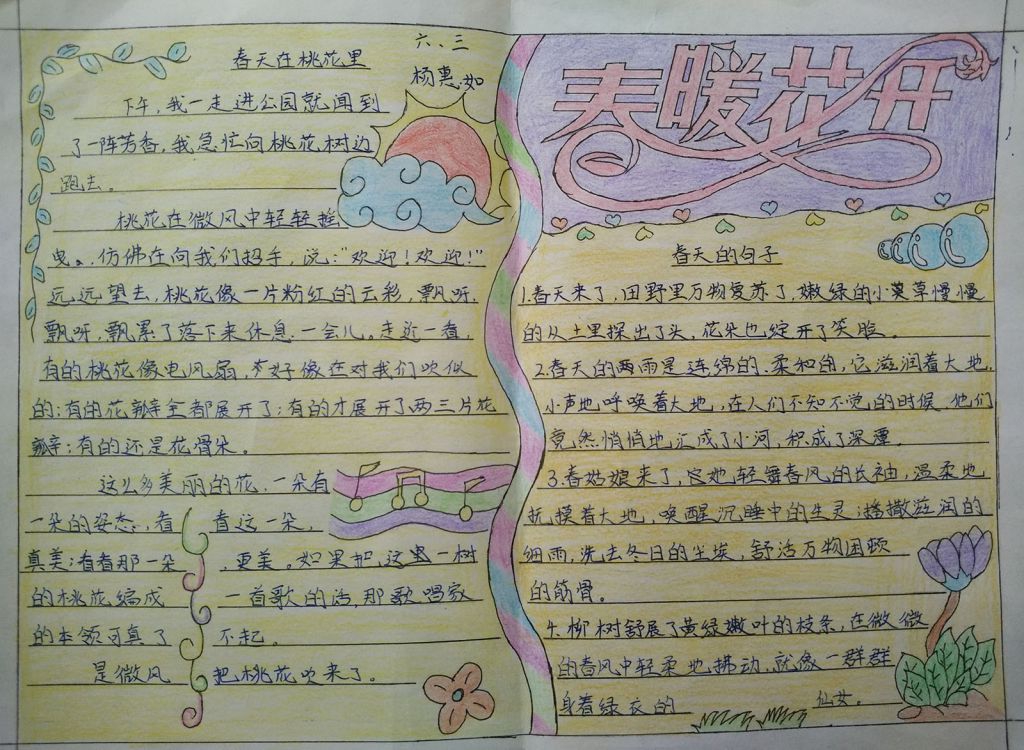 春天在桃花里
六、三
杨惠如
下午,我一走进公园就闻到
了一阵芳香,我急忙向桃花树边
跑去。
桃花在微风中轻轻摇
曳。仿佛在向我们招手,说:"欢迎!欢迎!"
远远望去,桃花像一片粉红的云彩,飘呀,
飘呀,飘累了落下来休息一会儿。走近一看,
有的桃花像电风扇,好像在对我们吹似
的;有的花瓣全都展开了;有的才展开了两三片花
瓣;有的还是花骨朵。
这么多美丽的花,一朵有
一朵的姿态,看看这一朵,
真美;看看那一朵,更美。如果把这一树
的桃花编成一首歌的话,那歌唱家
的本领可真了不起。
是微风把桃花吹来了。
春暖花开
春天的句子
1.春天来了,田野里万物复苏了,嫩绿的小草慢慢
的从土里探出了头,花朵也绽开了笑脸。
2.春天的雨是连绵的、柔和的,它滋润着大地,
小声地呼唤着大地,在人们不知不觉的时候,他们
竟然悄悄地汇成了小河,积成了深潭。
3.春姑娘来了,她轻舞春风的长袖,温柔地
抚摸着大地,唤醒沉睡中的生灵;播撒滋润的
细雨,洗去冬日的尘埃,舒活万物困顿
的筋骨。
4.柳树舒展了黄绿嫩叶的枝条,在微微
的春风中轻柔地拂动,就像一群群
身着绿衣的仙女。